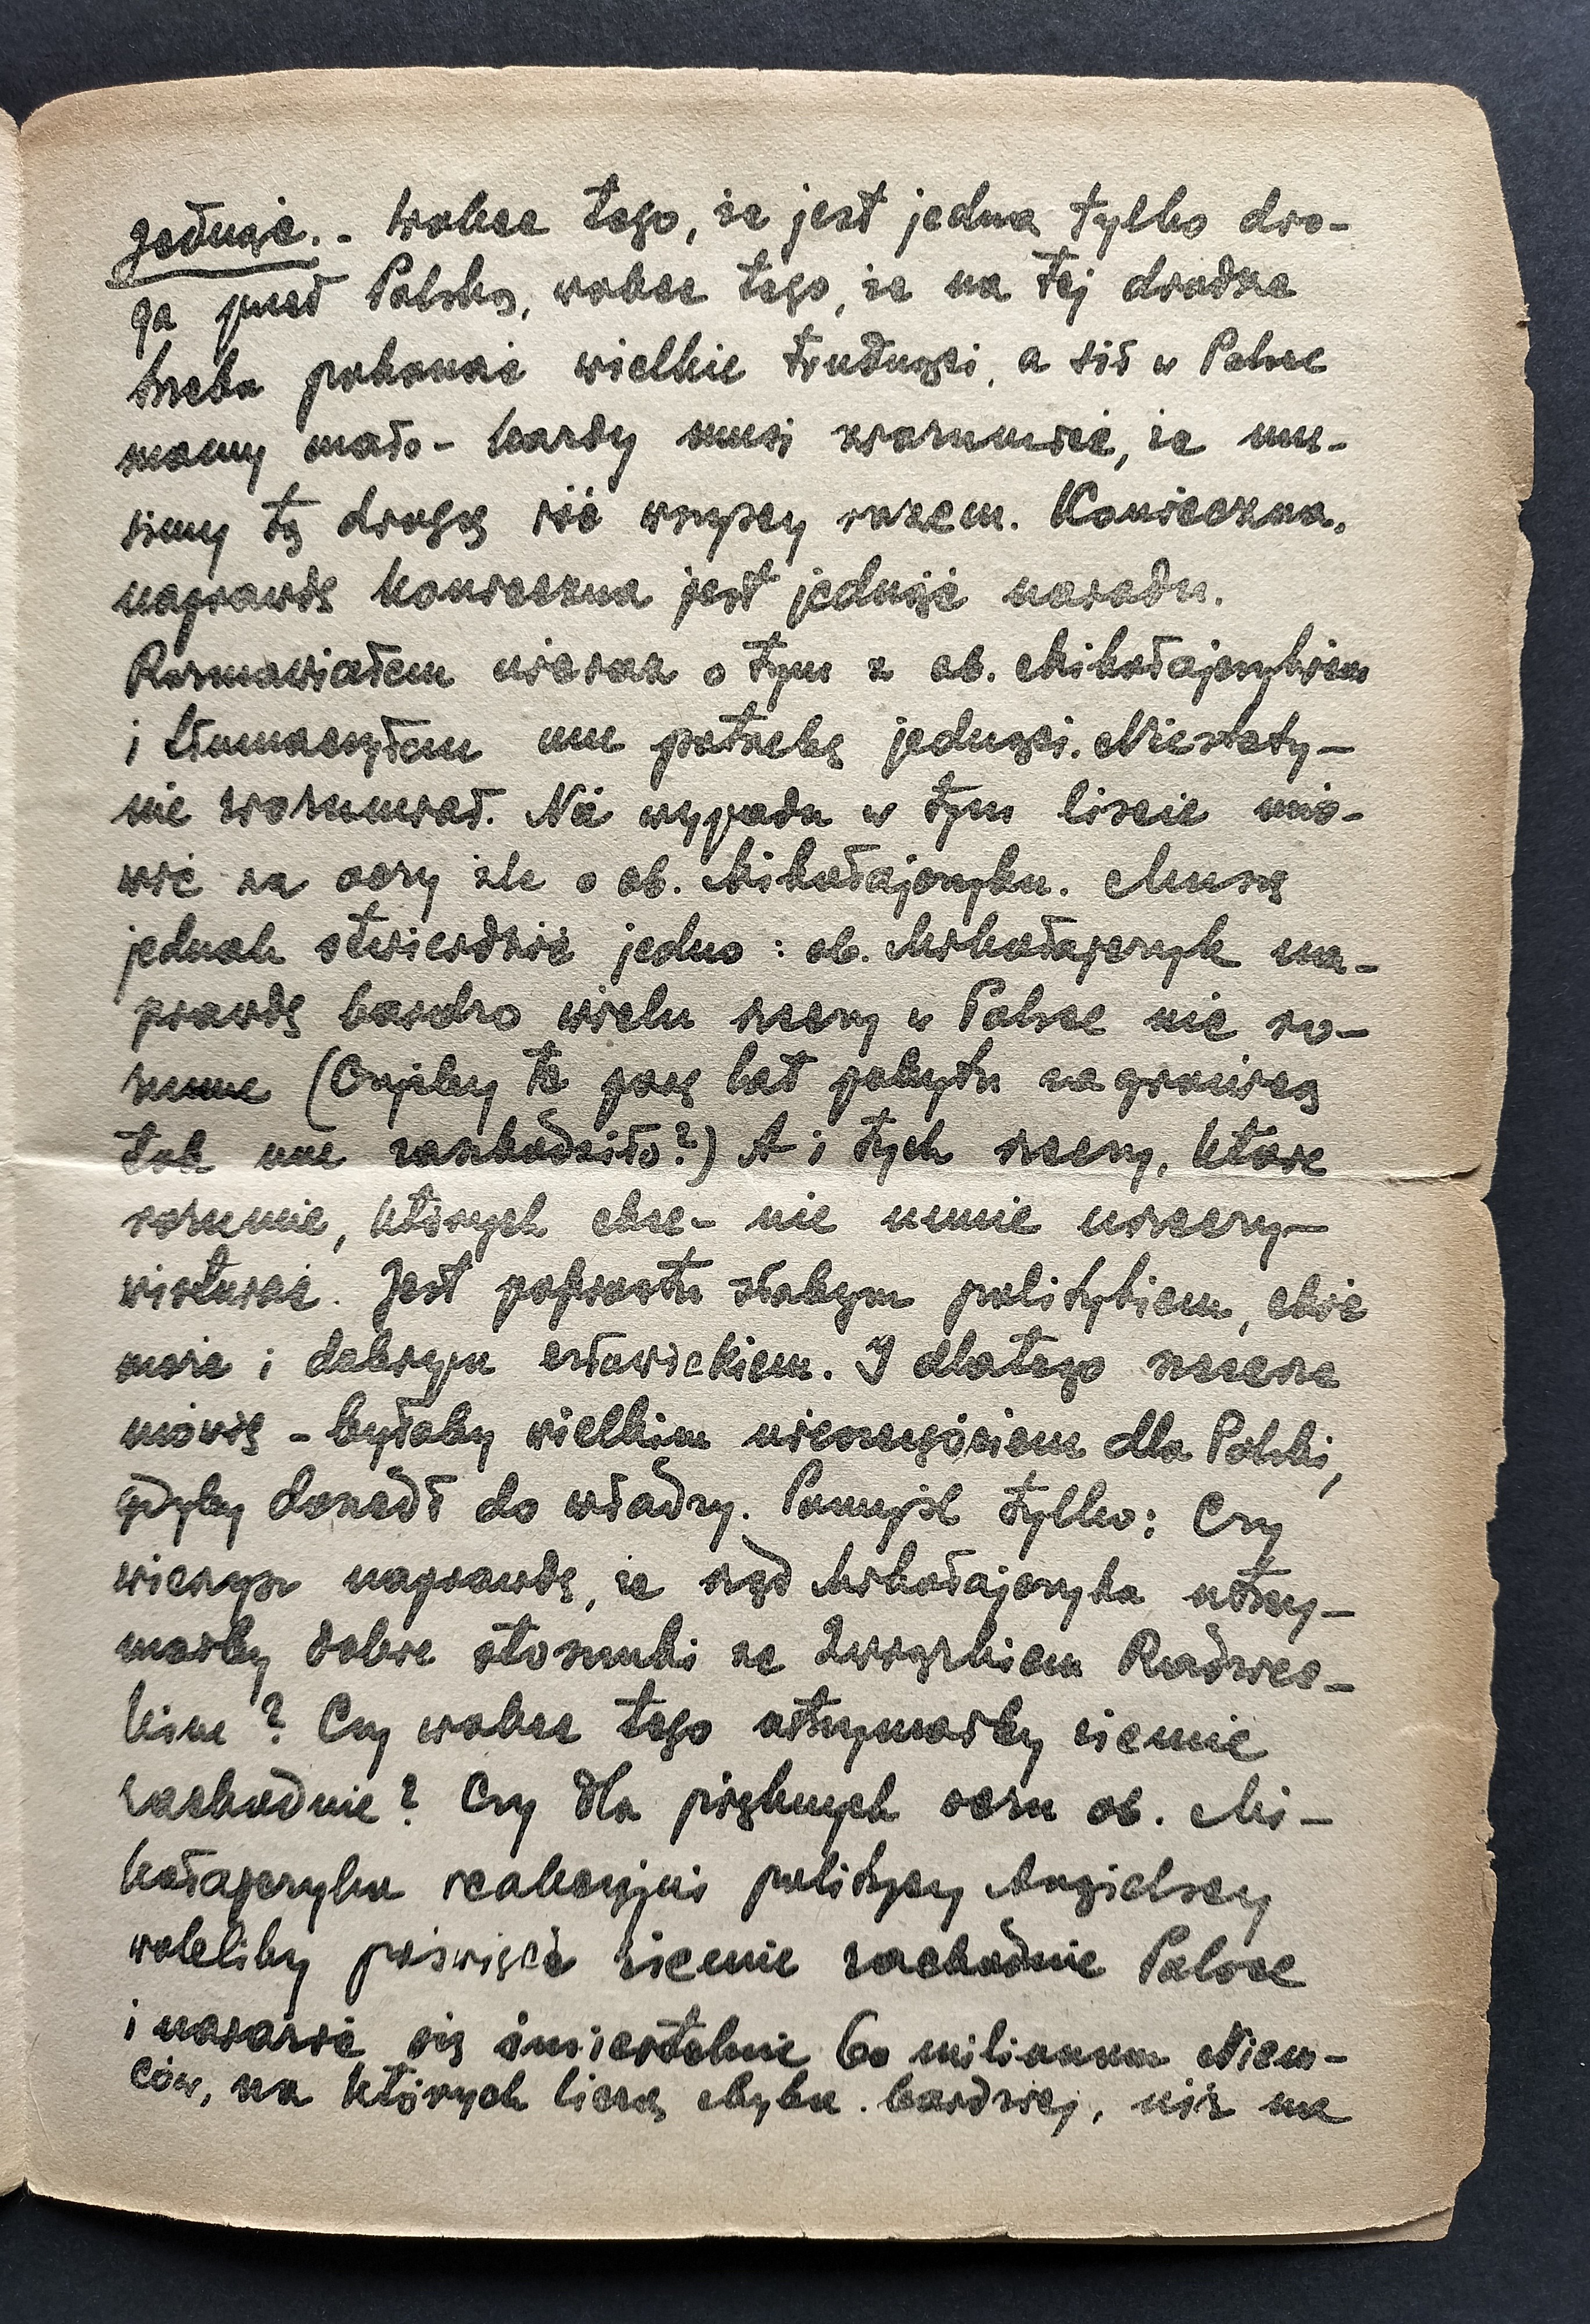 Jedność. - Wobec tego, że jest jedna tylko dro-
ga przed Polską, wobec tego, że na tej drodze
trzeba pokonać wielkie trudności, a sił w Polsce
mamy mało - każdy musi zrozumieć, że mu-
simy tą drogą iść wszyscy razem. Konieczna,
naprawdę konieczna jest jedność narodu.
Rozmawiałem nieraz o tym z ob. Mikołajczykiem
i tłumaczyłem mu potrzebę jedności. Niestety -
nie zrozumiał. Nie wypada w tym liście mó-
wić za oczy źle o ob. Mikołajczyku. Muszę
jednak stwierdzić jedno: ob. Mikołajczyk na-
prawdę bardzo wielu rzeczy w Polsce nie ro-
zumie (Czyżby te parę lat pobytu za granicą
tak mu zaszkodziło?) A i tych rzeczy, które
rozumie, których chce - nie umie urzeczy-
wistnić. Jest poprostu słabym politykiem, choć
może i dobrym człowiekiem. I dlatego szczerze
mówię - byłoby wielkim nieszczęściem dla Polski,
gdyby doszedł do władzy. Pomyśl tylko: Czy
wierzysz naprawdę, że rząd Mikołajczyka utrzy-
małby dobre stosunki ze Związkiem Radziec-
kim? Czy wobec tego utrzymałby ziemie
zachodnie? Czy dla pięknych oczu ob. Mi-
kołajczyka reakcyjni politycy Angielscy
woleliby poświęcić ziemie zachodnie Polsce
i narazić się śmiertelnie 60 milionom Niem-
ców, na których liczą chyba bardziej, niż na